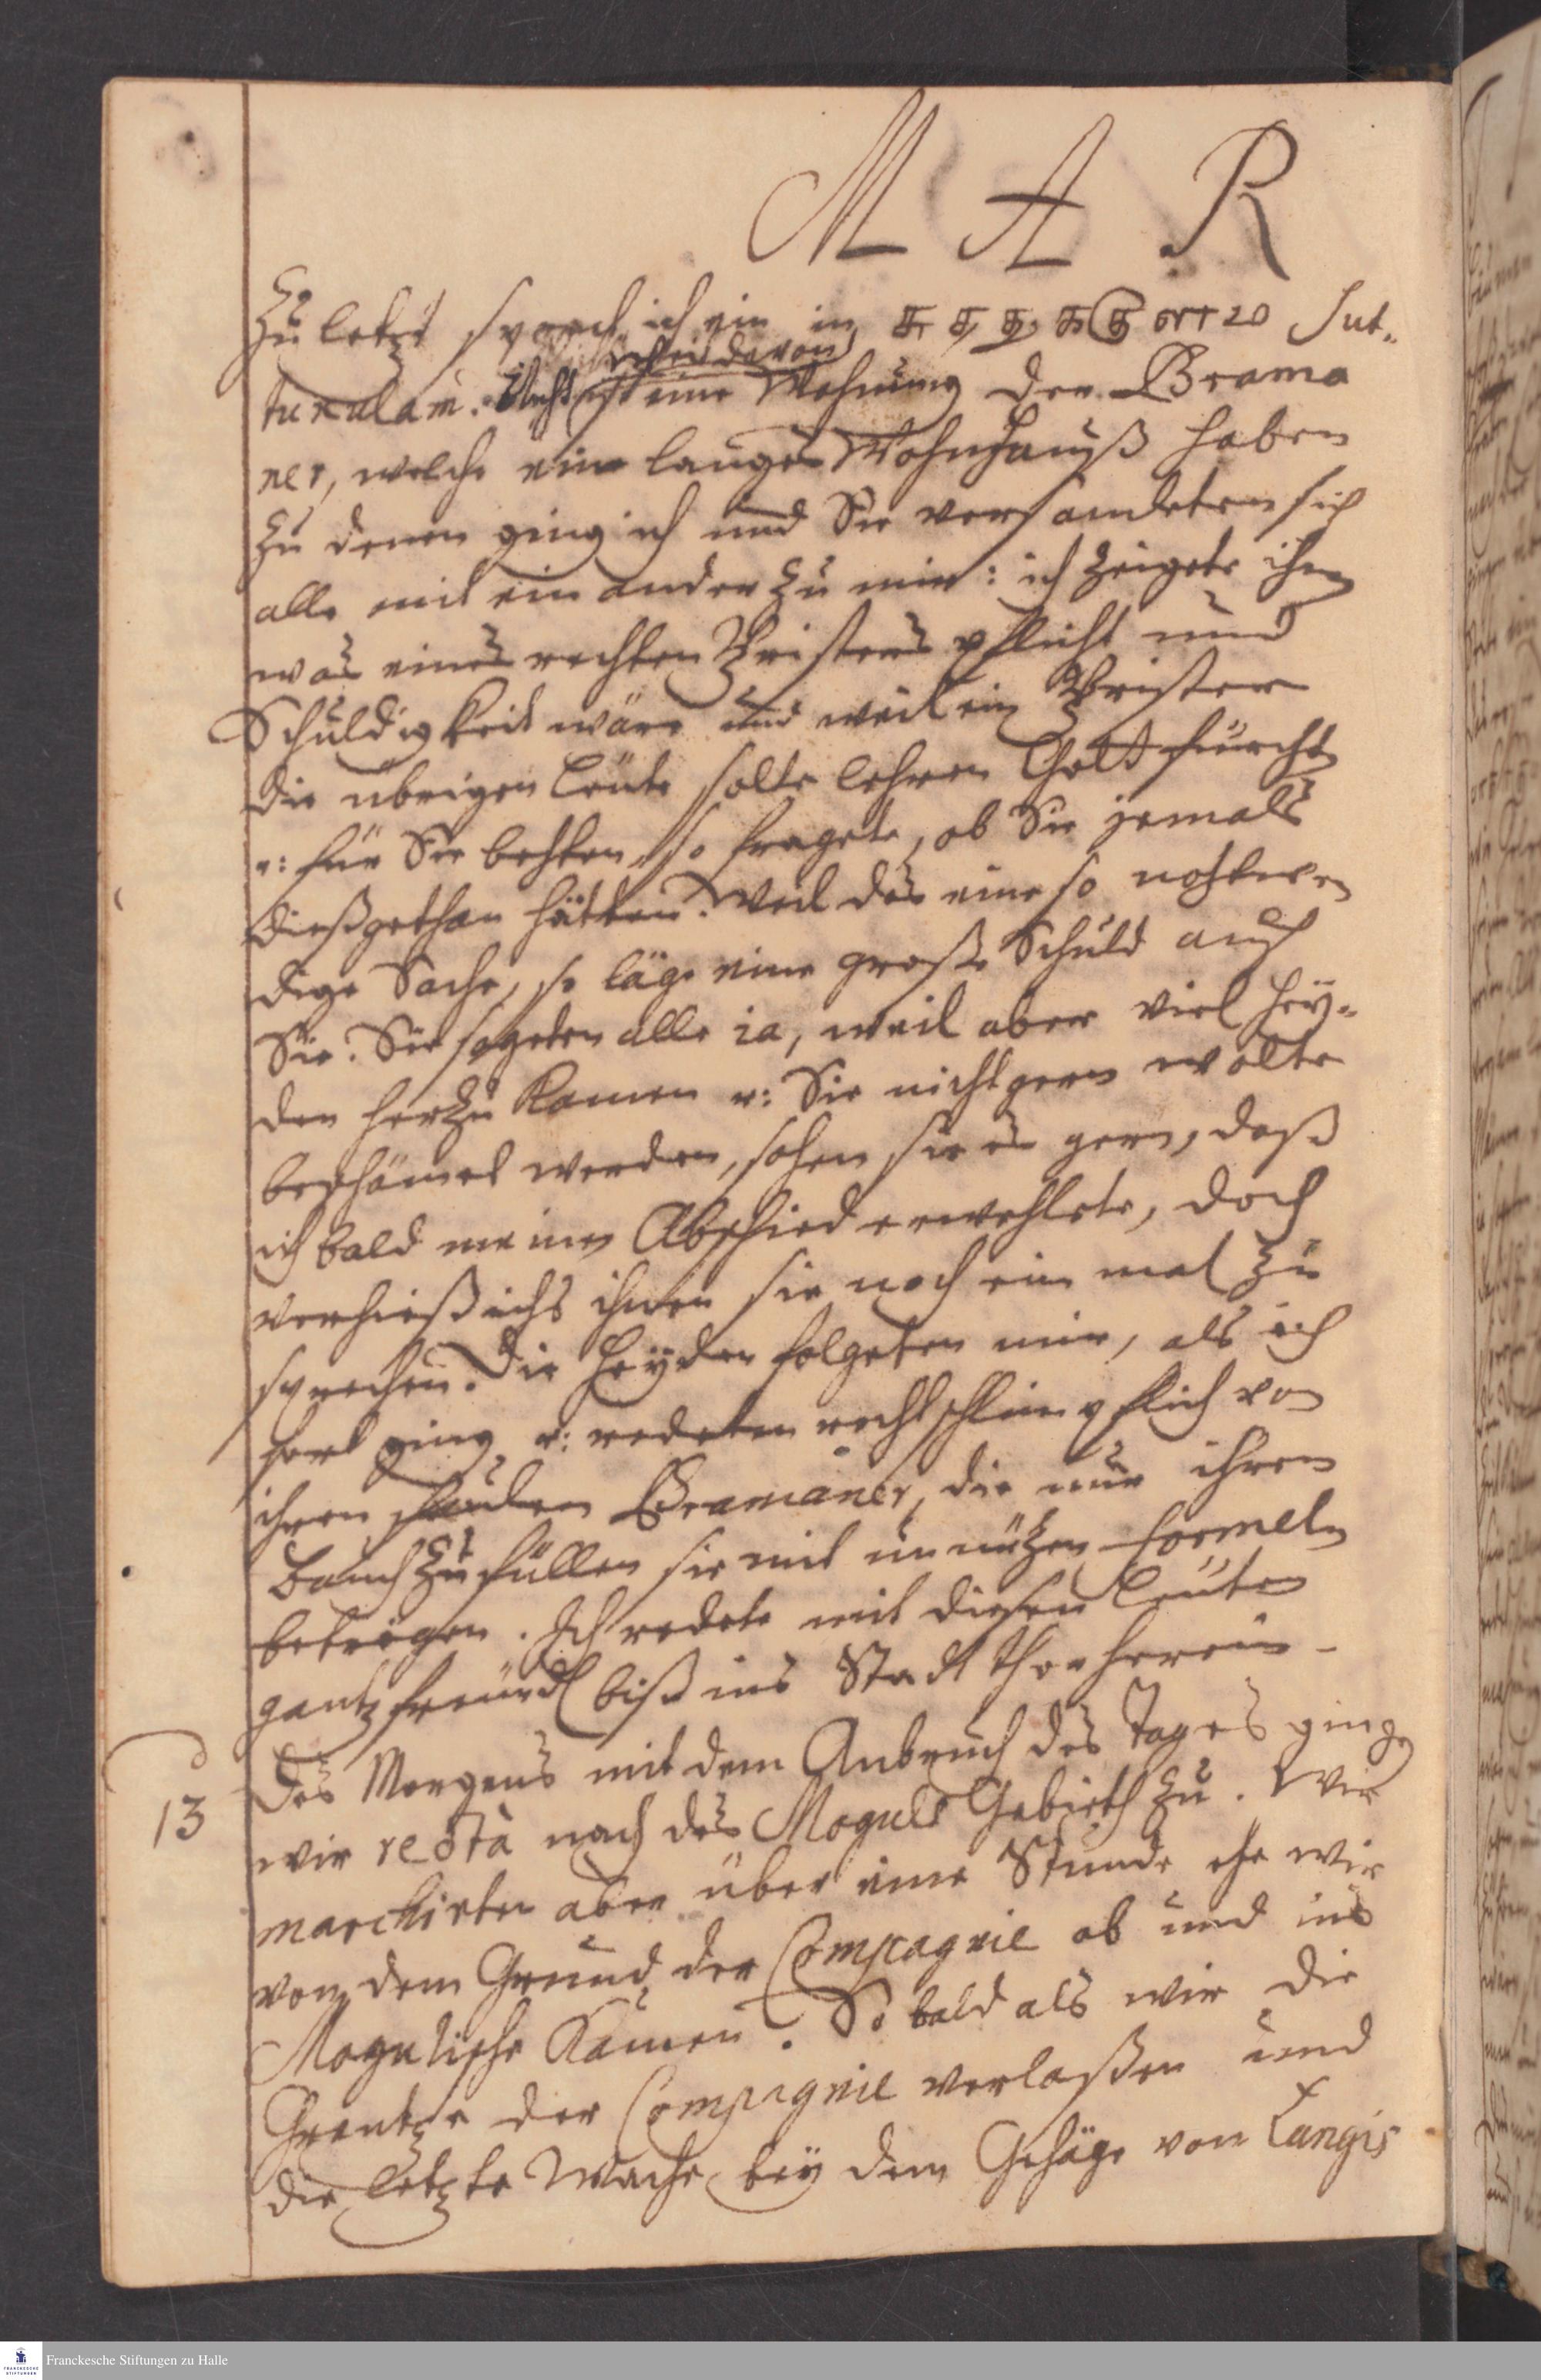 M A R
Zu letzt sprach ich ein in Sut-
nicht weit davon
tukulam. ist eine Wohnung der Brama
ner, welche ein langes Wohnhauß haben
zu denen ging ich und Sie versamleten sich
alle mit ein ander zu mir: ich zeigete ihn
was eines rechten Pristers pflicht und
Schuldigkeit wäre und weil ein Prister
die übrigen Leute solte lehren Gott fürchten
u: für Sie bethen, so fragete, ob Sie jemals
dieß gethan hätten? Weil das eine so nothwen
dige Sache, so läge eine große Schuld auf
Sie. Sie sageten alle ia, weil aber viel Hey-
den herzu kamen u: Sie nicht gern wolte
beschämet werden, sahen sie es gern, daß
ich bald meinen Abschied erwehlete, doch
verhieß ichs ihnen sie noch ein mal zu
sprechen. Die Heyden folgeten mir, als ich
fort ging u: redeten recht schimpflich von
ihren faulen Bramaner, die nur ihren
Bauch zu füllen sie mit unnützen formeln
betrögen. Ich redete mit diesen Leuten
gantz freundl biß ins Stadt thor herein.
13
Des Morgens mit dem Anbruch des Tages ginge
wir recta nach des Moguls Gebieth zu. Wir
marchirten aber über eine Stunde ehe wir
von dem Grund der Compagnie ab und ins
Mogulische kamen. So bald als wir die
Grentze der Compagnie verlaßen und
die letzte Wache bey dem Gehäge von Langis
Franckesche Stiftungen zu Halle